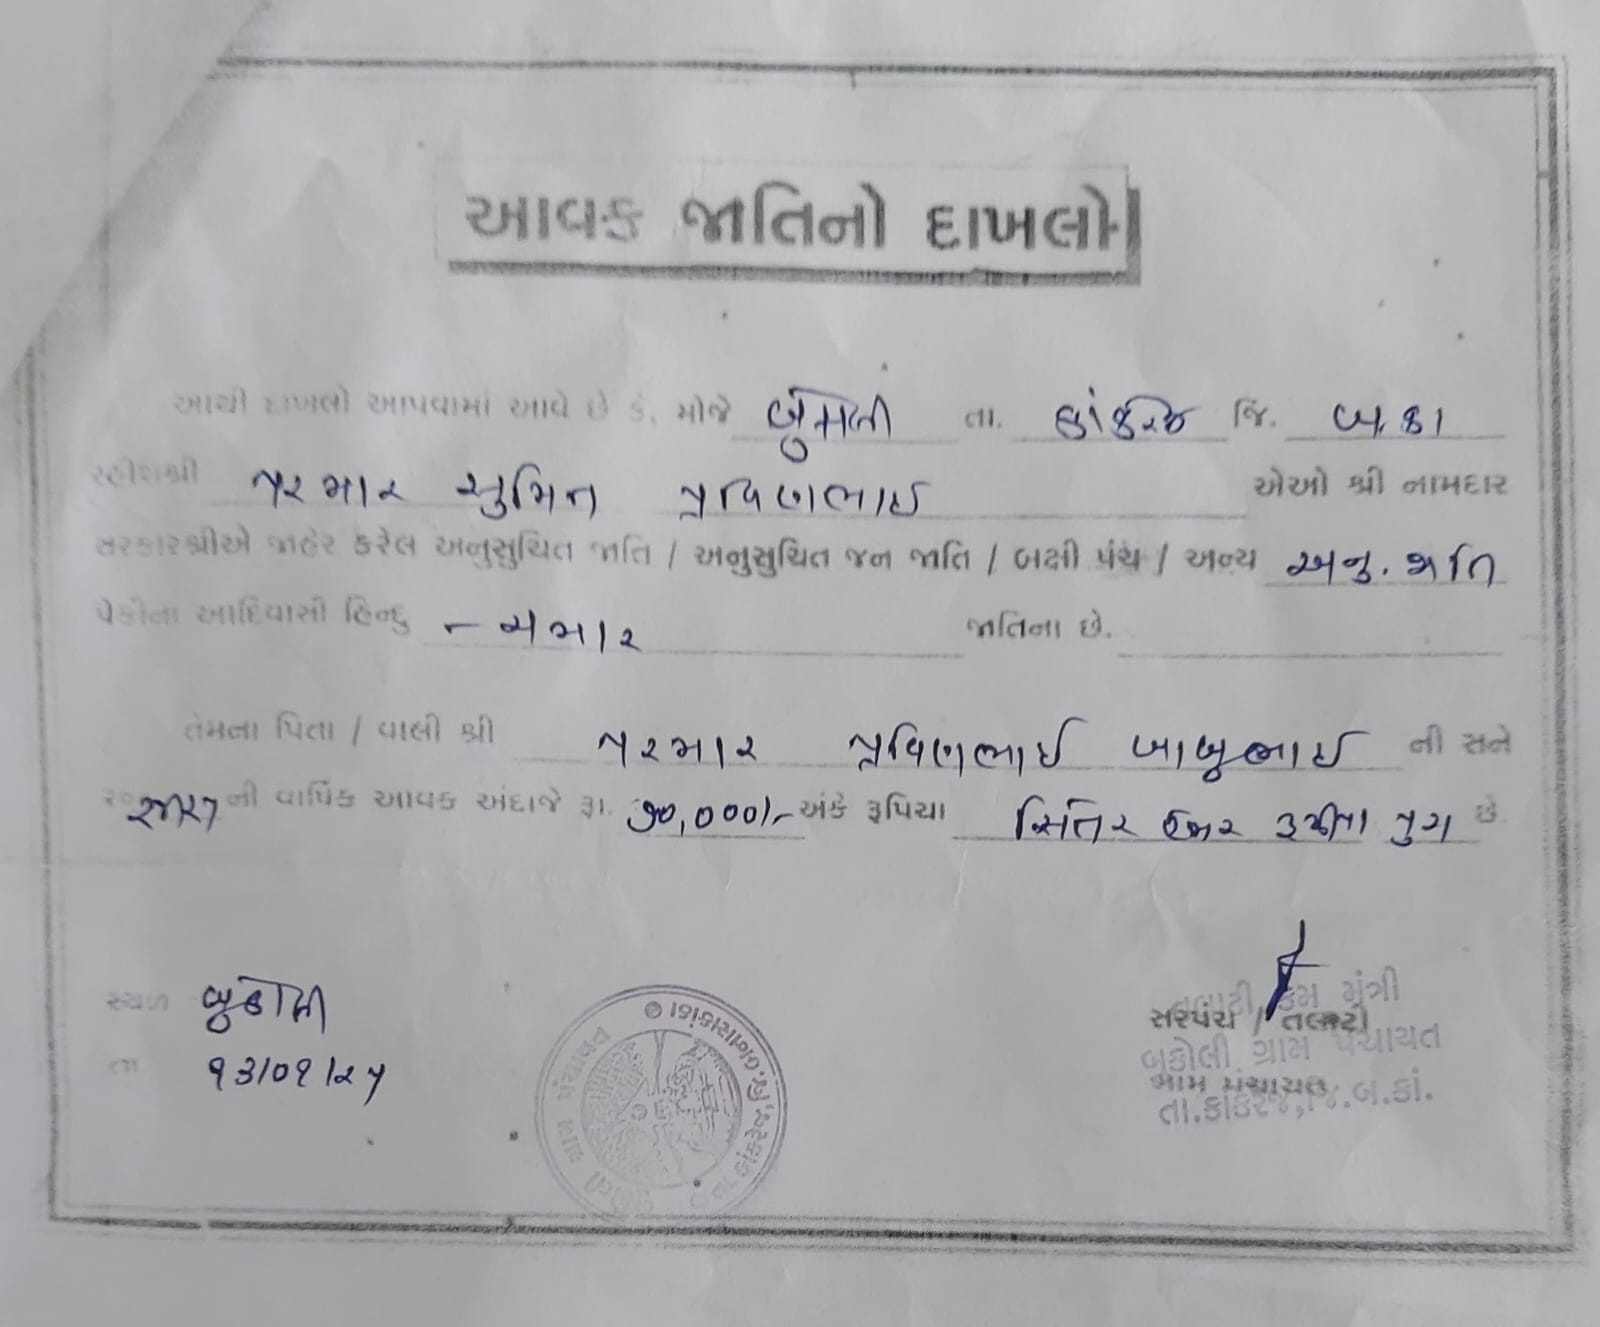 આવક જાતિનો દાખલો
આથી દાખલો આપવામાં આવે છે કે, મોજે બુકોલી તા. કાંકરેજ જિ. બ.કાં
રહીશશ્રી પરમાર સુમિત પ્રવિણભાઇ એઓ શ્રી નામદાર
સરકારશ્રીએ જાહેર કરેલ અનુસુચિત જાતિ / અનુસુચિત જન જાતિ / બક્ષી પંચ / અન્ય અનુ. જાતિ
પૈકીના આદિવાસી હિન્દુ - ચમાર જાતિના છે.
તેમના પિતા / વાલી શ્રી પરમાર પ્રવિણભાઇ બાબુભાઇ ની સને
ની વાર્ષિક આવક અંદાજે રૂા. ૭૦,૦૦૦/- અંકે રૂપિયા સિતેર હજાર રૂપીયા પુરા છે.
સ્થળ બુકોલી
તા ૧૩/૦૧/૨૫
તલાટી કમ મંત્રી
સરપંચ / તલાટી
બુકોલી ગ્રામ પંચાયત
ગ્રામ પંચાયત
તા.કાંકરેજ,જિ.બ.કાં.
ગ્રામ પંચાયત
તા.કાંકરેજ, જિ.બનાસકાંઠા